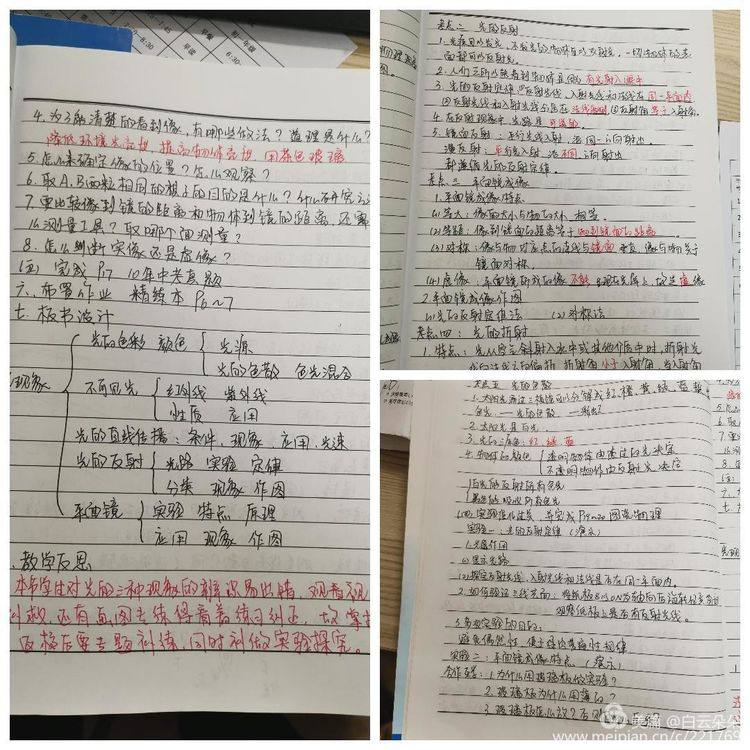 4.为了能清楚的看到像,有哪些做法?道理是什么?
降低环境光亮相 提高物体亮相 用茶色玻璃
5.怎么来确定像的位置?怎么观察?
6.取A、B两粒相同的棋子的目的是什么?
7.要比较像到镜的距离和物体到镜的距离,还需
么测量工具?取哪个面测量?
8.怎么判断实像还是虚像?
(三)完成P17 10年中考真题
六、布置作业 精练本P6~7
七、板书设计
光的色彩 颜色 光源
光的色散 色光混合
现象
不可见光 红外线 紫外线
性质 应用
光的直线传播:条件,现象 应用,光速
光的反射 光路 实验 定律
分类 现象 作图
平面镜 实验 特点 原理
应用 现象 作图
教学反思
本节学生对光的三种现象的辨识易出错,
还有画图去练得着着练习纠正,
后要专题训练,同时训做实验探究。
考点二 光的反射
1.光源可以发光,不发光的物体可以反射光,一切物体的表
面都可以反射光。
2.人们之所以能看到物体是因为有光射入眼中
3.光的反射定律①反射光线,入射光线和法线在同一平面内
②反射光线和入射光线分居在法线两侧,③反射角等于入射角。
4.在反射现象中,光路是可逆的
5.镜面反射:平行光线入射,沿同一方向射出
漫反射:平行光入射,沿不同方向射出
都遵循光的反射定律。
考点三 平面镜成像
1.平面镜成像特点
(1)等大:像的大小与物的大小 相等。
(2)等距:像到镜面的距离等于物到镜面的距离
(3)对称:像与物对应点的连线与镜面垂直,像与物关于
镜面对称。
(4)虚像:平面镜所成的像不能呈现在光屏上,故是虚像
2.平面镜成像作图
(1)光的反射定律法 (2)对称法
考点四:光的折射
1.特点:光从空气斜射入水中或其他介质中时,折射光
线向法线方向偏折,折射角小于入射角,当入射角
考点五 光的色散
1.太阳光通过三棱镜可以分解成红、橙、黄、绿、蓝、靛
色光——光的色散
2.太阳光是白光。
3.光的三原色:红、绿、蓝
4.物体的颜色 透明物体由透过的光决定
不透明物体由反射光决定
白色的反射所有色光
黑色的吸收所有色光
实验一:光的反射定律(演示)
1.光屏作用
(1)显示光路
(2)探究反射光线,入射光线和法线是否在同一平面内。
2.如何验证三线共面:将纸板B以ON为轴向后
观察纸板上是否有反射光线。
3.多次实验的目的:
避免偶然性,便于得出普遍性规律
实验二:平面镜成像特点(演示)
合作互学:1.为什么用玻璃板做实验?
2.玻璃板为什么用薄的?
3.玻璃板怎么放?
美篇 @白云朵朵
www.meipian.cn/c/221769